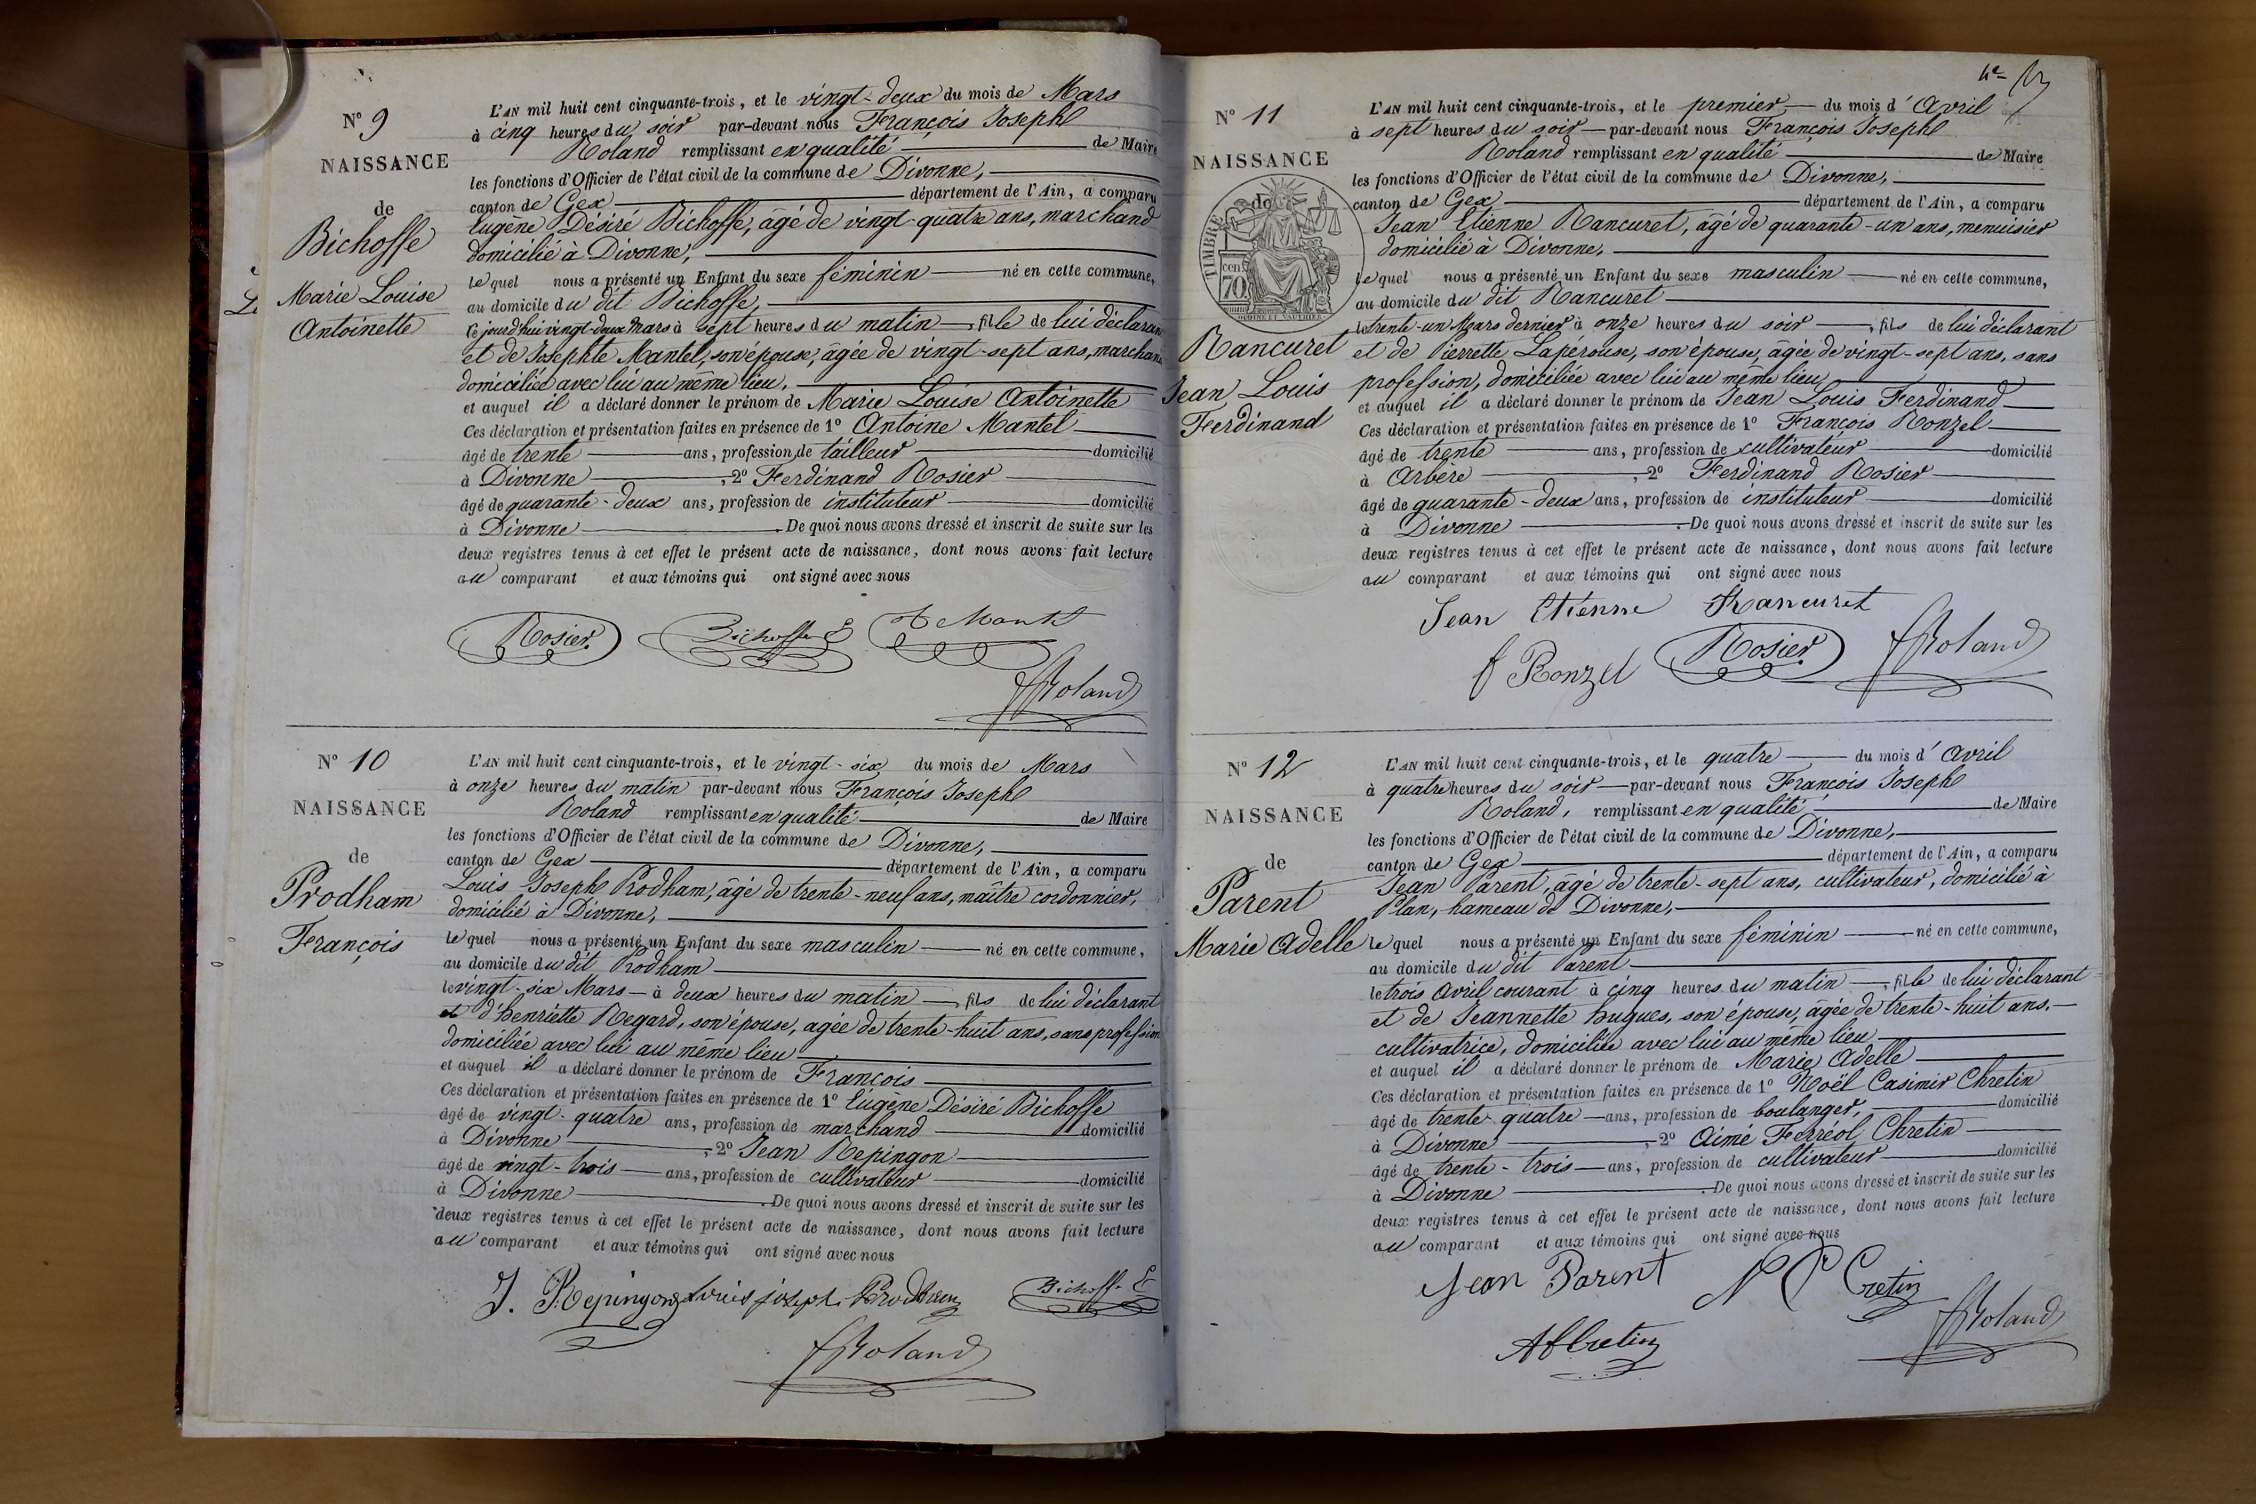 N° 9
NAISSANCE
de
Bichoffe
Marie Louise
Antoinette
L'AN mil huit cent cinquante-trois, et le vingt-deux du mois de Mars
à cinq heures du soir par-devant nous François Joseph
Roland remplissant en qualité de Maire
les fonctions d'Officier de l'état civil de la commune de Divonne,
canton de Gex département de l'Ain, a comparu
Eugène Désiré Bichoffe, âgé de vingt-quatre ans, marchand
domicilié à Divonne,
lequel nous a présenté un Enfant du sexe féminin né en cette commune,
au domicile du dit Bichoffe,
ce jourd'hui vingt-deux Mars à sept heures du matin, fille de lui déclarant
et de Josephte Mantel, son épouse, âgée de vingt-sept ans, marchande
domiciliée avec lui au même lieu,
et auquel il a déclaré donner le prénom de Marie Louise Antoinette
Ces déclaration et présentation faites en présence de 1° Antoine Mantel
âgé de trente ans, profession de tailleur domicilié
à Divonne, 2° Ferdinand Rosier
âgé de quarante-deux ans, profession de instituteur domicilié
à Divonne. De quoi nous avons dressé et inscrit de suite sur les
deux registres tenus à cet effet le présent acte de naissance, dont nous avons fait lecture
au comparant et aux témoins qui ont signé avec nous
Rosier Bichoffe E Mantel
FRoland
N° 10
NAISSANCE
de
Prodham
François
L'AN mil huit cent cinquante-trois, et le vingt-six du mois de Mars
à onze heures du matin par-devant nous François Joseph
Roland remplissant en qualité de Maire
les fonctions d'Officier de l'état civil de la commune de Divonne,
canton de Gex département de l'Ain, a comparu
Louis Joseph Prodham, âgé de trente-neuf ans, maître cordonnier,
domicilié à Divonne,
lequel nous a présenté un Enfant du sexe masculin né en cette commune,
au domicile du dit Prodham
le vingt-six Mars à deux heures du matin, fils de lui déclarant
et d'henriette Regard, son épouse, agée de trente-huit ans, sans profession
domiciliée avec lui au même lieu
et auquel il a déclaré donner le prénom de François
Ces déclaration et présentation faites en présence de 1° Eugène Désiré Bichoffe
âgé de vingt-quatre ans, profession de marchand domicilié
à Divonne, 2° Jean Repingon
âgé de vingt-trois ans, profession de cultivateur domicilié
à Divonne. De quoi nous avons dressé et inscrit de suite sur les
deux registres tenus à cet effet le présent acte de naissance, dont nous avons fait lecture
au comparant et aux témoins qui ont signé avec nous
J. Repingon Louis joseph Prodham Bichoffe E
FRoland
N° 11
NAISSANCE
de
TIMBRE
cen.
70
Rancuret
Jean Louis
Ferdinand
L'AN mil huit cent cinquante-trois, et le premier du mois d'Avril
à sept heures du soir par-devant nous François Joseph
Roland remplissant en qualité de Maire
les fonctions d'Officier de l'état civil de la commune de Divonne,
canton de Gex département de l'Ain, a comparu
Jean Etienne Rancuret, âgé de quarante-un ans, menuisier
domicilié à Divonne,
lequel nous a présenté un Enfant du sexe masculin né en cette commune,
au domicile du dit Rancuret
le trente-un Mars dernier à onze heures du soir, fils de lui déclarant
et de Pierrette Lapérouse, son épouse, âgée de vingt-sept ans, sans
profession, domiciliée avec lui au même lieu
et auquel il a déclaré donner le prénom de Jean Louis Ferdinand
Ces déclaration et présentation faites en présence de 1° François Ronzel
âgé de trente ans, profession de cultivateur domicilié
à Arbère, 2° Ferdinand Rosier
âgé de quarante-deux ans, profession de instituteur domicilié
à Divonne. De quoi nous avons dressé et inscrit de suite sur les
deux registres tenus à cet effet le présent acte de naissance, dont nous avons fait lecture
au comparant et aux témoins qui ont signé avec nous
Jean Etienne Rancuret
f Ronzel Rosier FRoland
N° 12
NAISSANCE
de
Parent
Marie Adelle
L'AN mil huit cent cinquante-trois, et le quatre du mois d'Avril
à quatre heures du soir par-devant nous François Joseph
Roland, remplissant en qualité de Maire
les fonctions d'Officier de l'état civil de la commune de Divonne,
canton de Gex département de l'Ain, a comparu
Jean Parent, âgé de trente-sept ans, cultivateur, domicilié à
Plan, hameau de Divonne,
lequel nous a présenté un Enfant du sexe féminin né en cette commune,
au domicile du dit Parent
le trois Avril courant à cinq heures du matin, fille de lui déclarant
et de Jeannette hugues, son épouse, âgée de trente-huit ans.
cultivatrice, domiciliée avec lui au même lieu
et auquel il a déclaré donner le prénom de Marie Adelle
Ces déclaration et présentation faites en présence de 1° Noël Casimir Chretin
âgé de trente-quatre ans, profession de boulanger, domicilié
à Divonne, 2° Aimé Ferréol Chretin
âgé de trente-trois ans, profession de cultivateur domicilié
à Divonne. De quoi nous avons dressé et inscrit de suite sur les
deux registres tenus à cet effet le présent acte de naissance, dont nous avons fait lecture
au comparant et aux témoins qui ont signé avec nous
Jean Parent N C Cretin
AfCretin FRoland